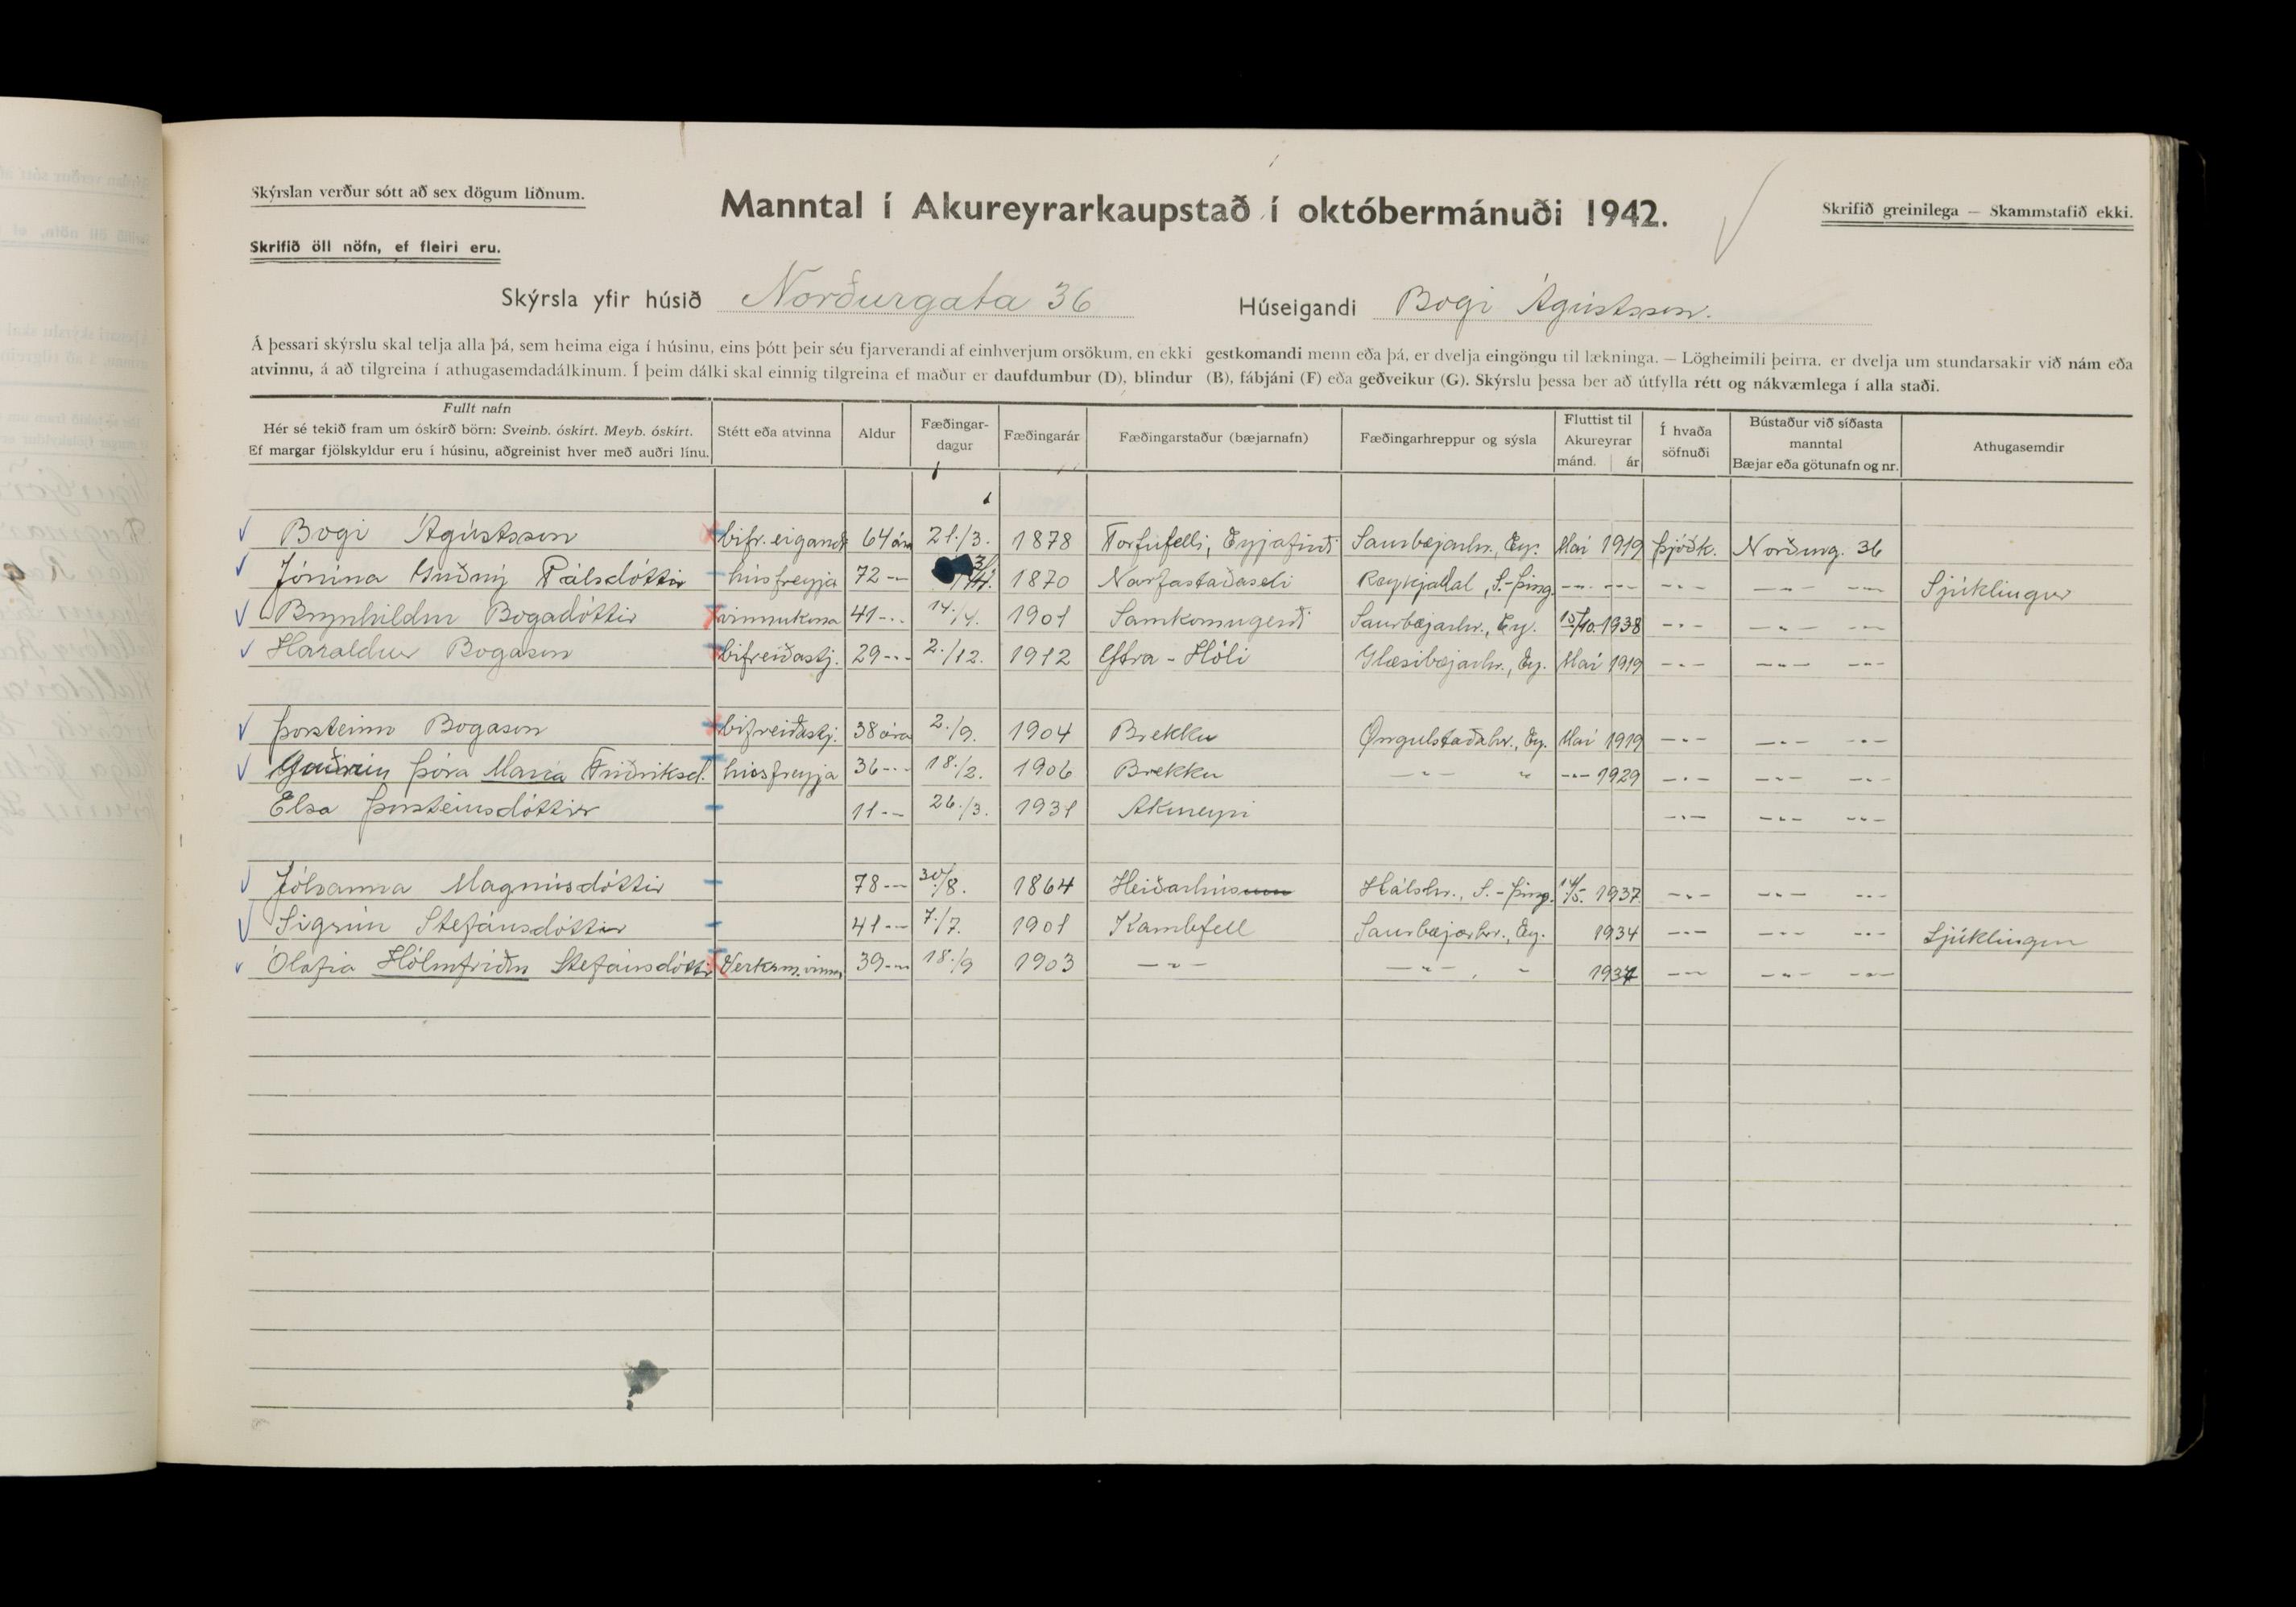 Skýrslan verður sótt að sex dögum liðnum.
Manntal í Akureyrarkaupstað í októbermánuði 1942.
Skrifið greinilega — Skammstafið ekki.
Skrifið öll nöfn, ef fleiri eru.
Skýrsla yfir húsið Norðurgata 36 Húseigandi Bogi Ágústsson.
Á þessari skýrslu skal telja alla þá, sem heima eiga í húsinu, eins þótt þeir séu fjarverandi af einhverjum orsökum, en ekki gestkomandi menn eða þá, er dvelja eingöngu til lækninga. — Lögheimili þeirra, er dvelja um stundarsakir við nám eða
atvinnu, á að tilgreina í athugasemdadálkinum. Í þeim dálki skal einnig tilgreina ef maður er daufdumbur (D), blindur (B), fábjáni (F) eða geðveikur (G). Skýrslu þessa ber að útfylla rétt og nákvæmlega í alla staði.
Fullt nafn
Hér sé tekið fram um óskírð börn: Sveinb. óskírt. Meyb. óskírt.
Ef margar fjölskyldur eru í húsinu, aðgreinist hver með auðri línu.
Stétt eða atvinna
Aldur
Fæðingar-
dagur
Fæðingarár
Fæðingarstaður (bæjarnafn)
Fæðingarhreppur og sýsla
Fluttist til
Akureyrar
mánd. ár
Í hvaða
söfnuði
Bústaður við síðasta
manntal
Bæjar eða götunafn og nr.
Athugasemdir
Bogi Ágústsson bifr.eigandi 64 ára 21./3. 1878 Torfufelli, Eyjafirði Saurbæjarhr., Ey. Maí 1919 Þjóðk. Norðurg. 36
Jónína Guðný Pálsdóttir húsfreyja 72 -"- 1870 Narfastaðaseli Reykjadal, S.-Þing. -"- -"- -"- -"- -"- Sjúklingur
Brynhildur Bogadóttir vinnukona 41 -"- 14./4. 1901 Samkomugerði Saurbæjarhr., Ey. 15/10. 1938 -"- -"- -"-
Haraldur Bogason bifreiðastj. 29 -"- 2./12. 1912 Efra-Hóli Glæsibæjarhr., Ey. Maí 1919 -"- -"- -"-
Þorsteinn Bogason bifreiðastj. 38 ára 2./9. 1904 Brekku Öngulstaðahr., Ey. Maí 1919 -"- -"- -"-
Guðrún Þóra María Friðriksd. húsfreyja 36 -"- 18./2. 1906 Brekku -"- " -"- 1929 -"- -"- -"-
Elsa Þorsteinsdóttir 11 -"- 26./3. 1931 Akureyri -"- -"- -"-
Jóhanna Magnúsdóttir 78 -"- 30./8. 1864 Heiðarhús Hálshr., S.-Þing. 14/5. 1937 -"- -"- -"-
Sigrún Stefánsdóttir 41 -"- 7./7. 1901 Kambfell Saurbæjarhr., Ey. 1934 -"- -"- -"- Sjúklingur
Ólafía Hólmfríður Stefánsdóttir Verksm.vinna 39 -"- 18./9 1903 -"- -"-, " 1934 -"- -"- -"-